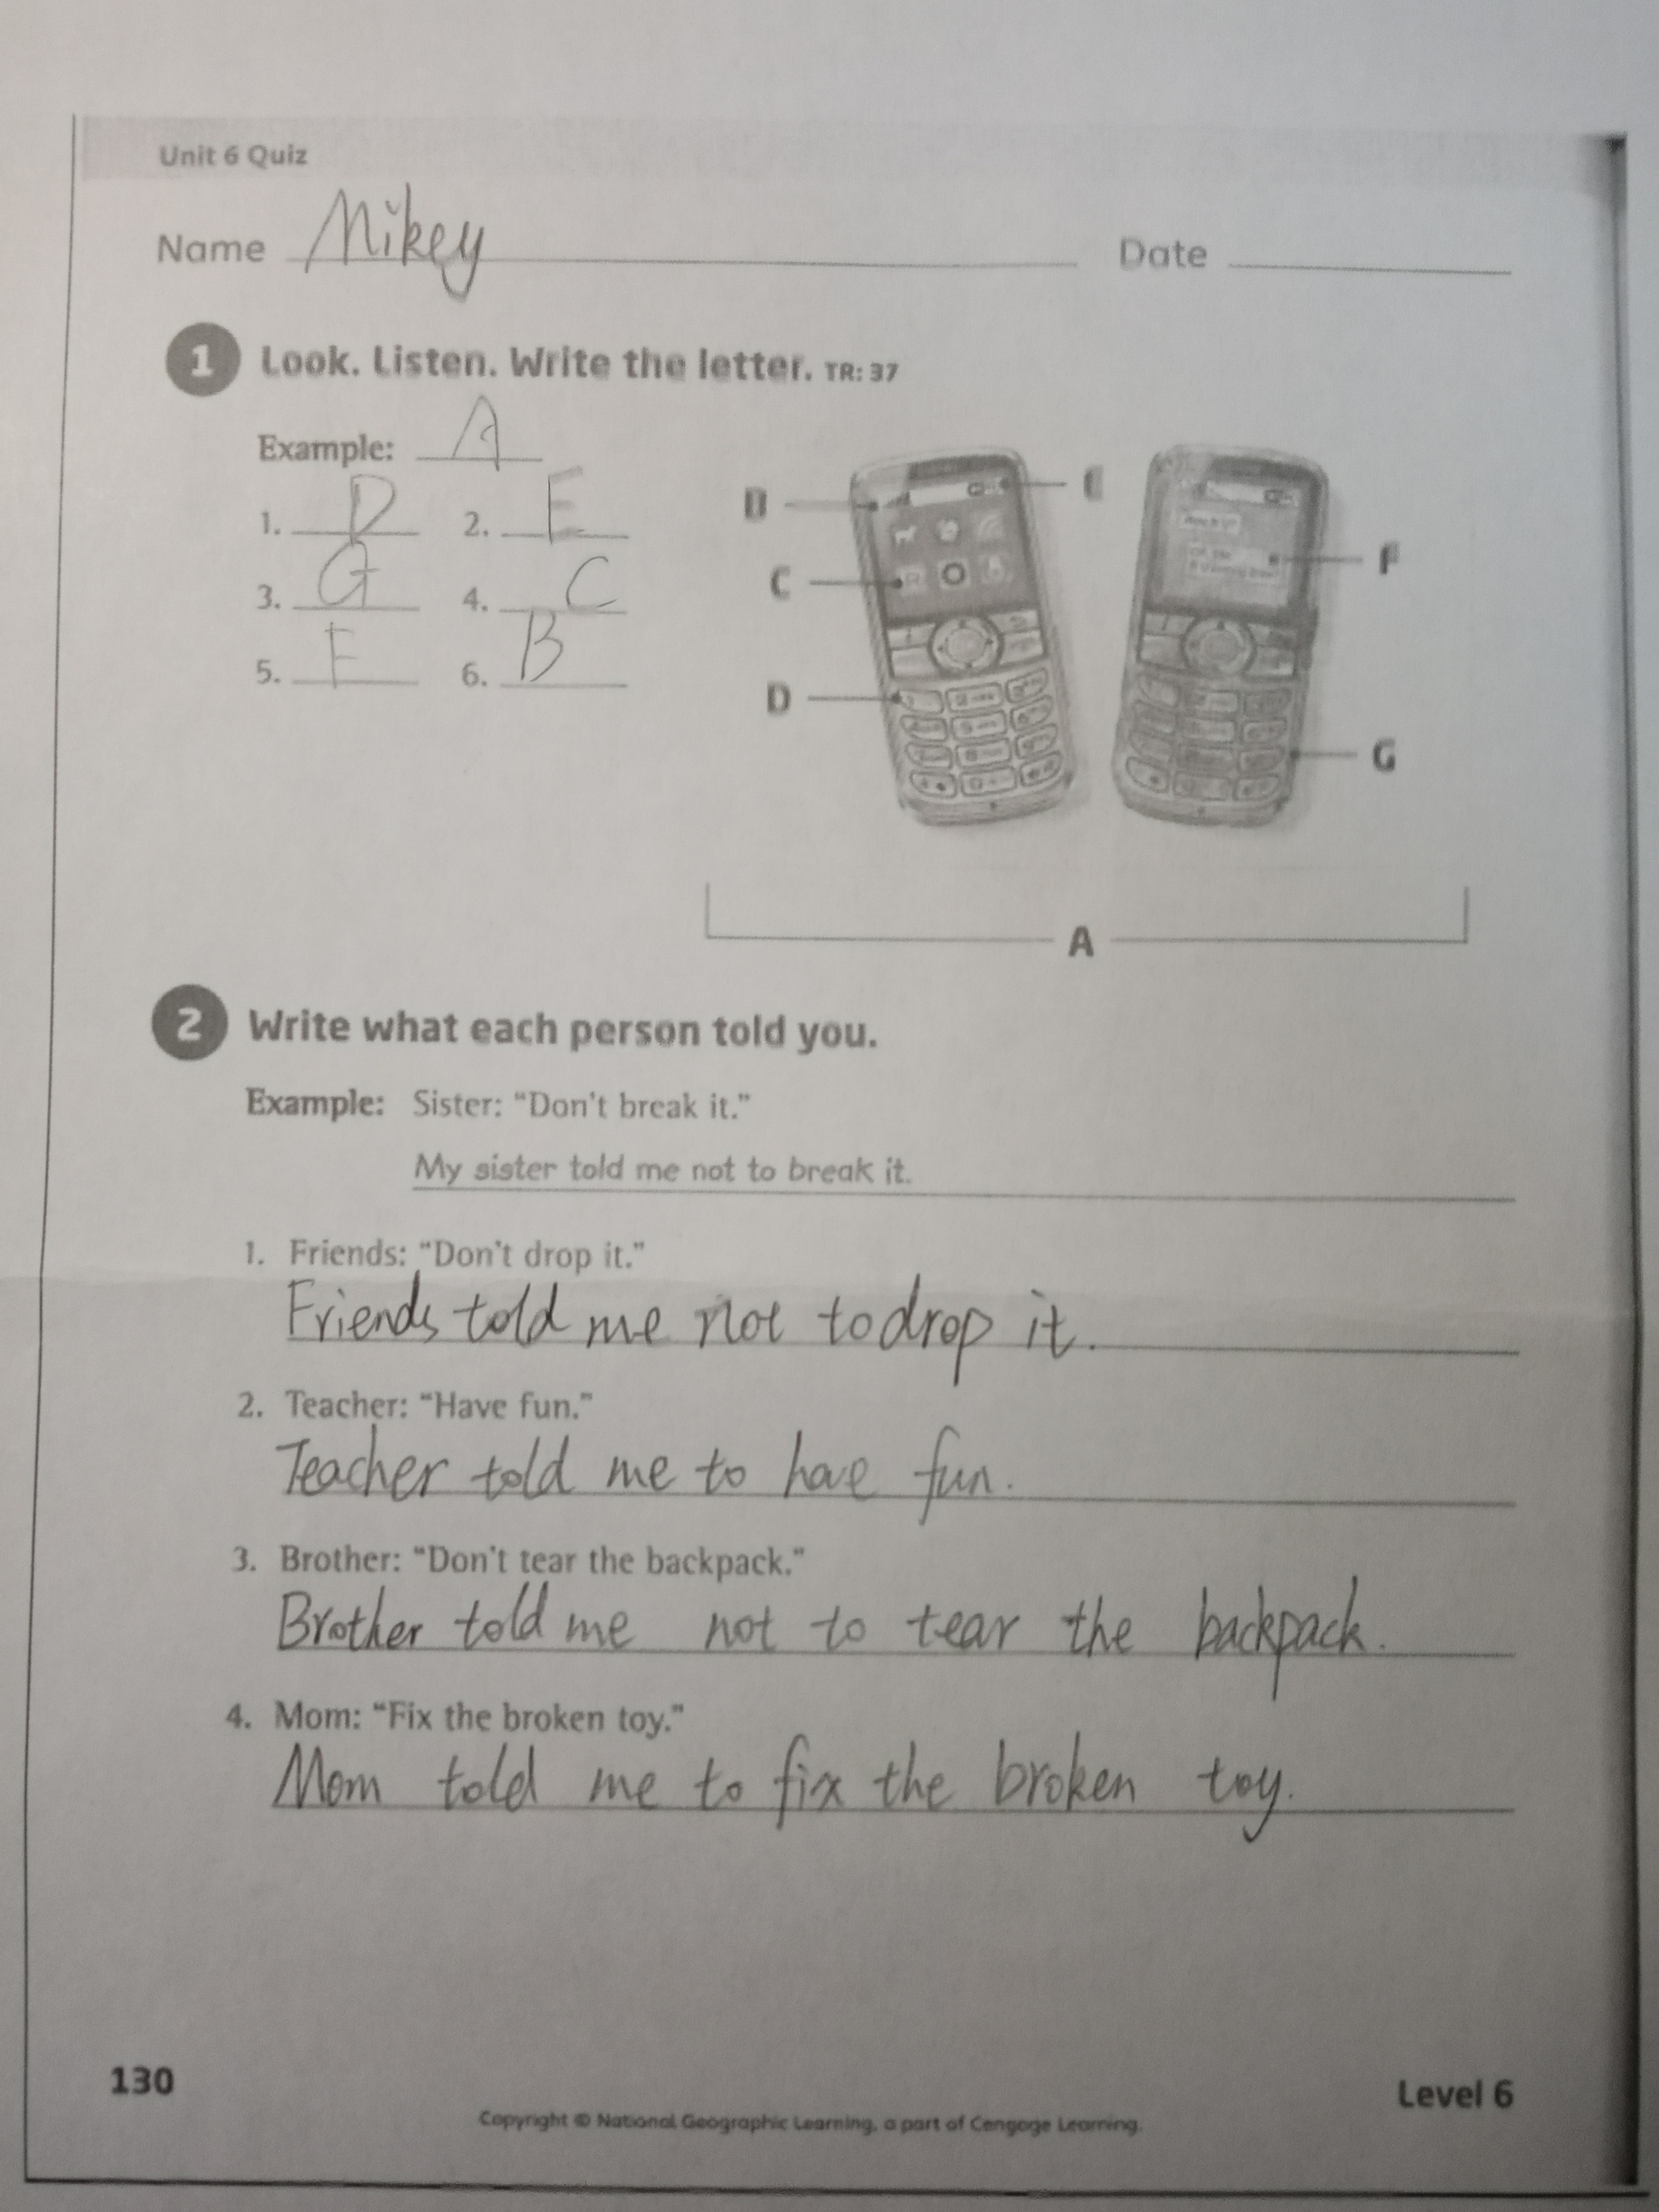 Unit 6 Quiz
Name Mikey Date
1 Look. Listen. Write the letter. TR: 37
Example: A
1. D 2. E
3. G 4. C
5. F 6. B
B
E
C
F
D
G
A
2 Write what each person told you.
Example: Sister: "Don't break it."
My sister told me not to break it.
1. Friends: "Don't drop it."
Friends told me not to drop it.
2. Teacher: "Have fun."
Teacher told me to have fun.
3. Brother: "Don't tear the backpack."
Brother told me not to tear the backpack.
4. Mom: "Fix the broken toy."
Mom told me to fix the broken toy.
130
Level 6
Copyright © National Geographic Learning, a part of Cengage Learning.